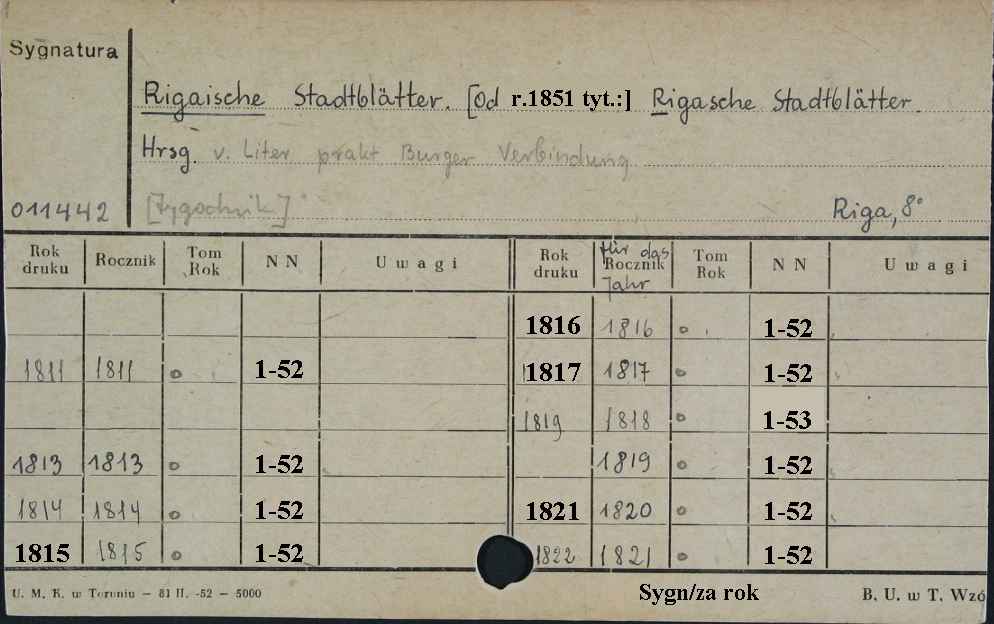 Sygnatura
Rigaische Stadtblätter. [Od r.1851 tyt.:] Rigasche Stadtblätter
Hrsg. v. Liter prakt Burger Verbindung
011442 [tygodnik] Riga, 8°
Rok druku Rocznik Tom Rok N N Uwagi Rok druku für das Rocznik Jahr Tom Rok N N Uwagi
1816 1816 o 1-52
1811 1811 o 1-52 1817 1817 o 1-52
1819 1818 o 1-53
1813 1813 o 1-52 1819 o 1-52
1814 1814 o 1-52 1821 1820 o 1-52
1815 1815 o 1-52 1822 1821 o 1-52
U. M. K. w Toruniu — 81 II. -52 — 5000 Sygn/za rok B. U. w T. Wzó